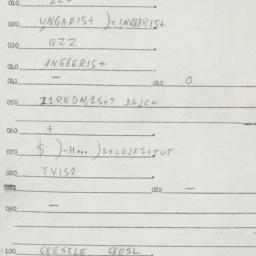 010
020 UNGARIS+ )=INGBRIS+
030 GZZ
040 INGBERIS+
041 — 042 0
050 Z1REDN,1S+ DAJC+
060 +
070 $ )-H... )S+LOJFS+JUT
080 TVIS1
081 082 —
090 —
100 GRESELE GRESL